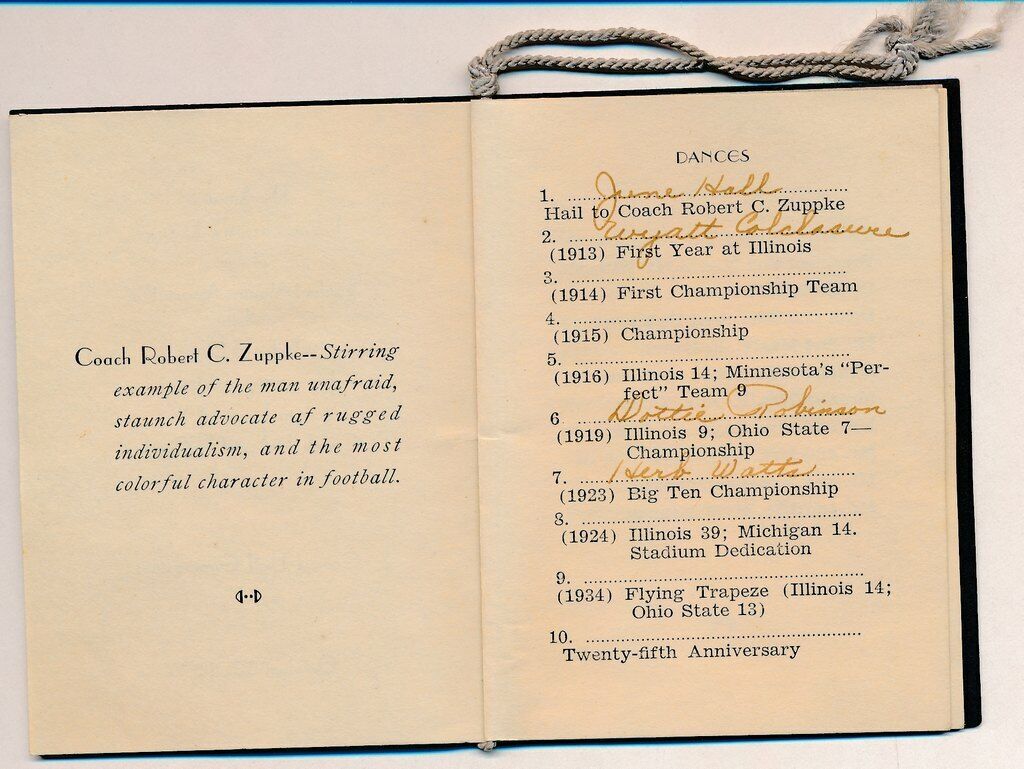 Coach Robert C. Zuppke--Stirring
example of the man unafraid,
staunch advocate af rugged
individualism, and the most
colorful character in football.
DANCES
1. June Hall
Hail to Coach Robert C. Zuppke
2. Wyatt Colclasure
(1913) First Year at Illinois
3.
(1914) First Championship Team
4.
(1915) Championship
5.
(1916) Illinois 14; Minnesota's "Per-
fect" Team 9
6. Dottie Robinson
(1919) Illinois 9; Ohio State 7—
Championship
7. Herb Watts
(1923) Big Ten Championship
8.
(1924) Illinois 39; Michigan 14.
Stadium Dedication
9.
(1934) Flying Trapeze (Illinois 14;
Ohio State 13)
10.
Twenty-fifth Anniversary